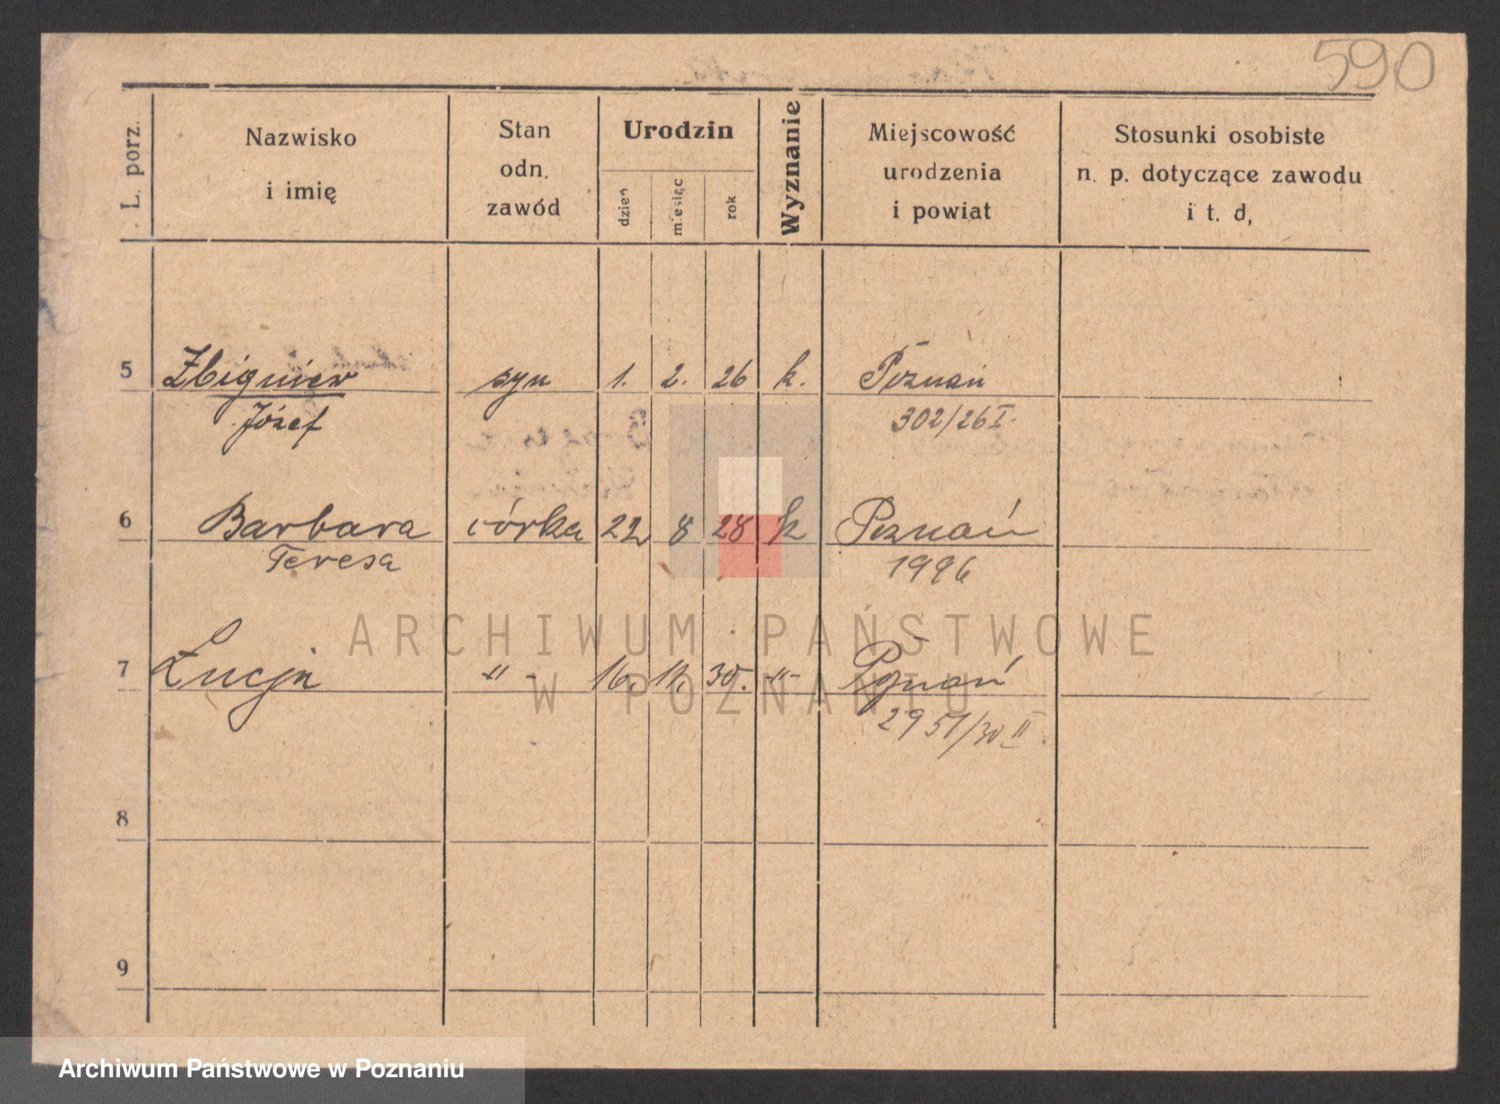 590
L. porz.
Nazwisko
i imię
Stan
odn.
zawód
Urodzin
dzień
miesiąc
rok
Wyznanie
Miejscowość
urodzenia
i powiat
Stosunki osobiste
n. p. dotyczące zawodu
i t. d,
5 Zbigniew syn 1. 2. 26 k. Poznań
Józef 302/26 I.
6 Barbara córka 22 8 28 k Poznań
Teresa 1996
7 Łucja -"- 16. 11. 30. -"- Poznań
2951/30 II
ARCHIWUM PAŃSTWOWE
W POZNANIU
8
9
Archiwum Państwowe w Poznaniu